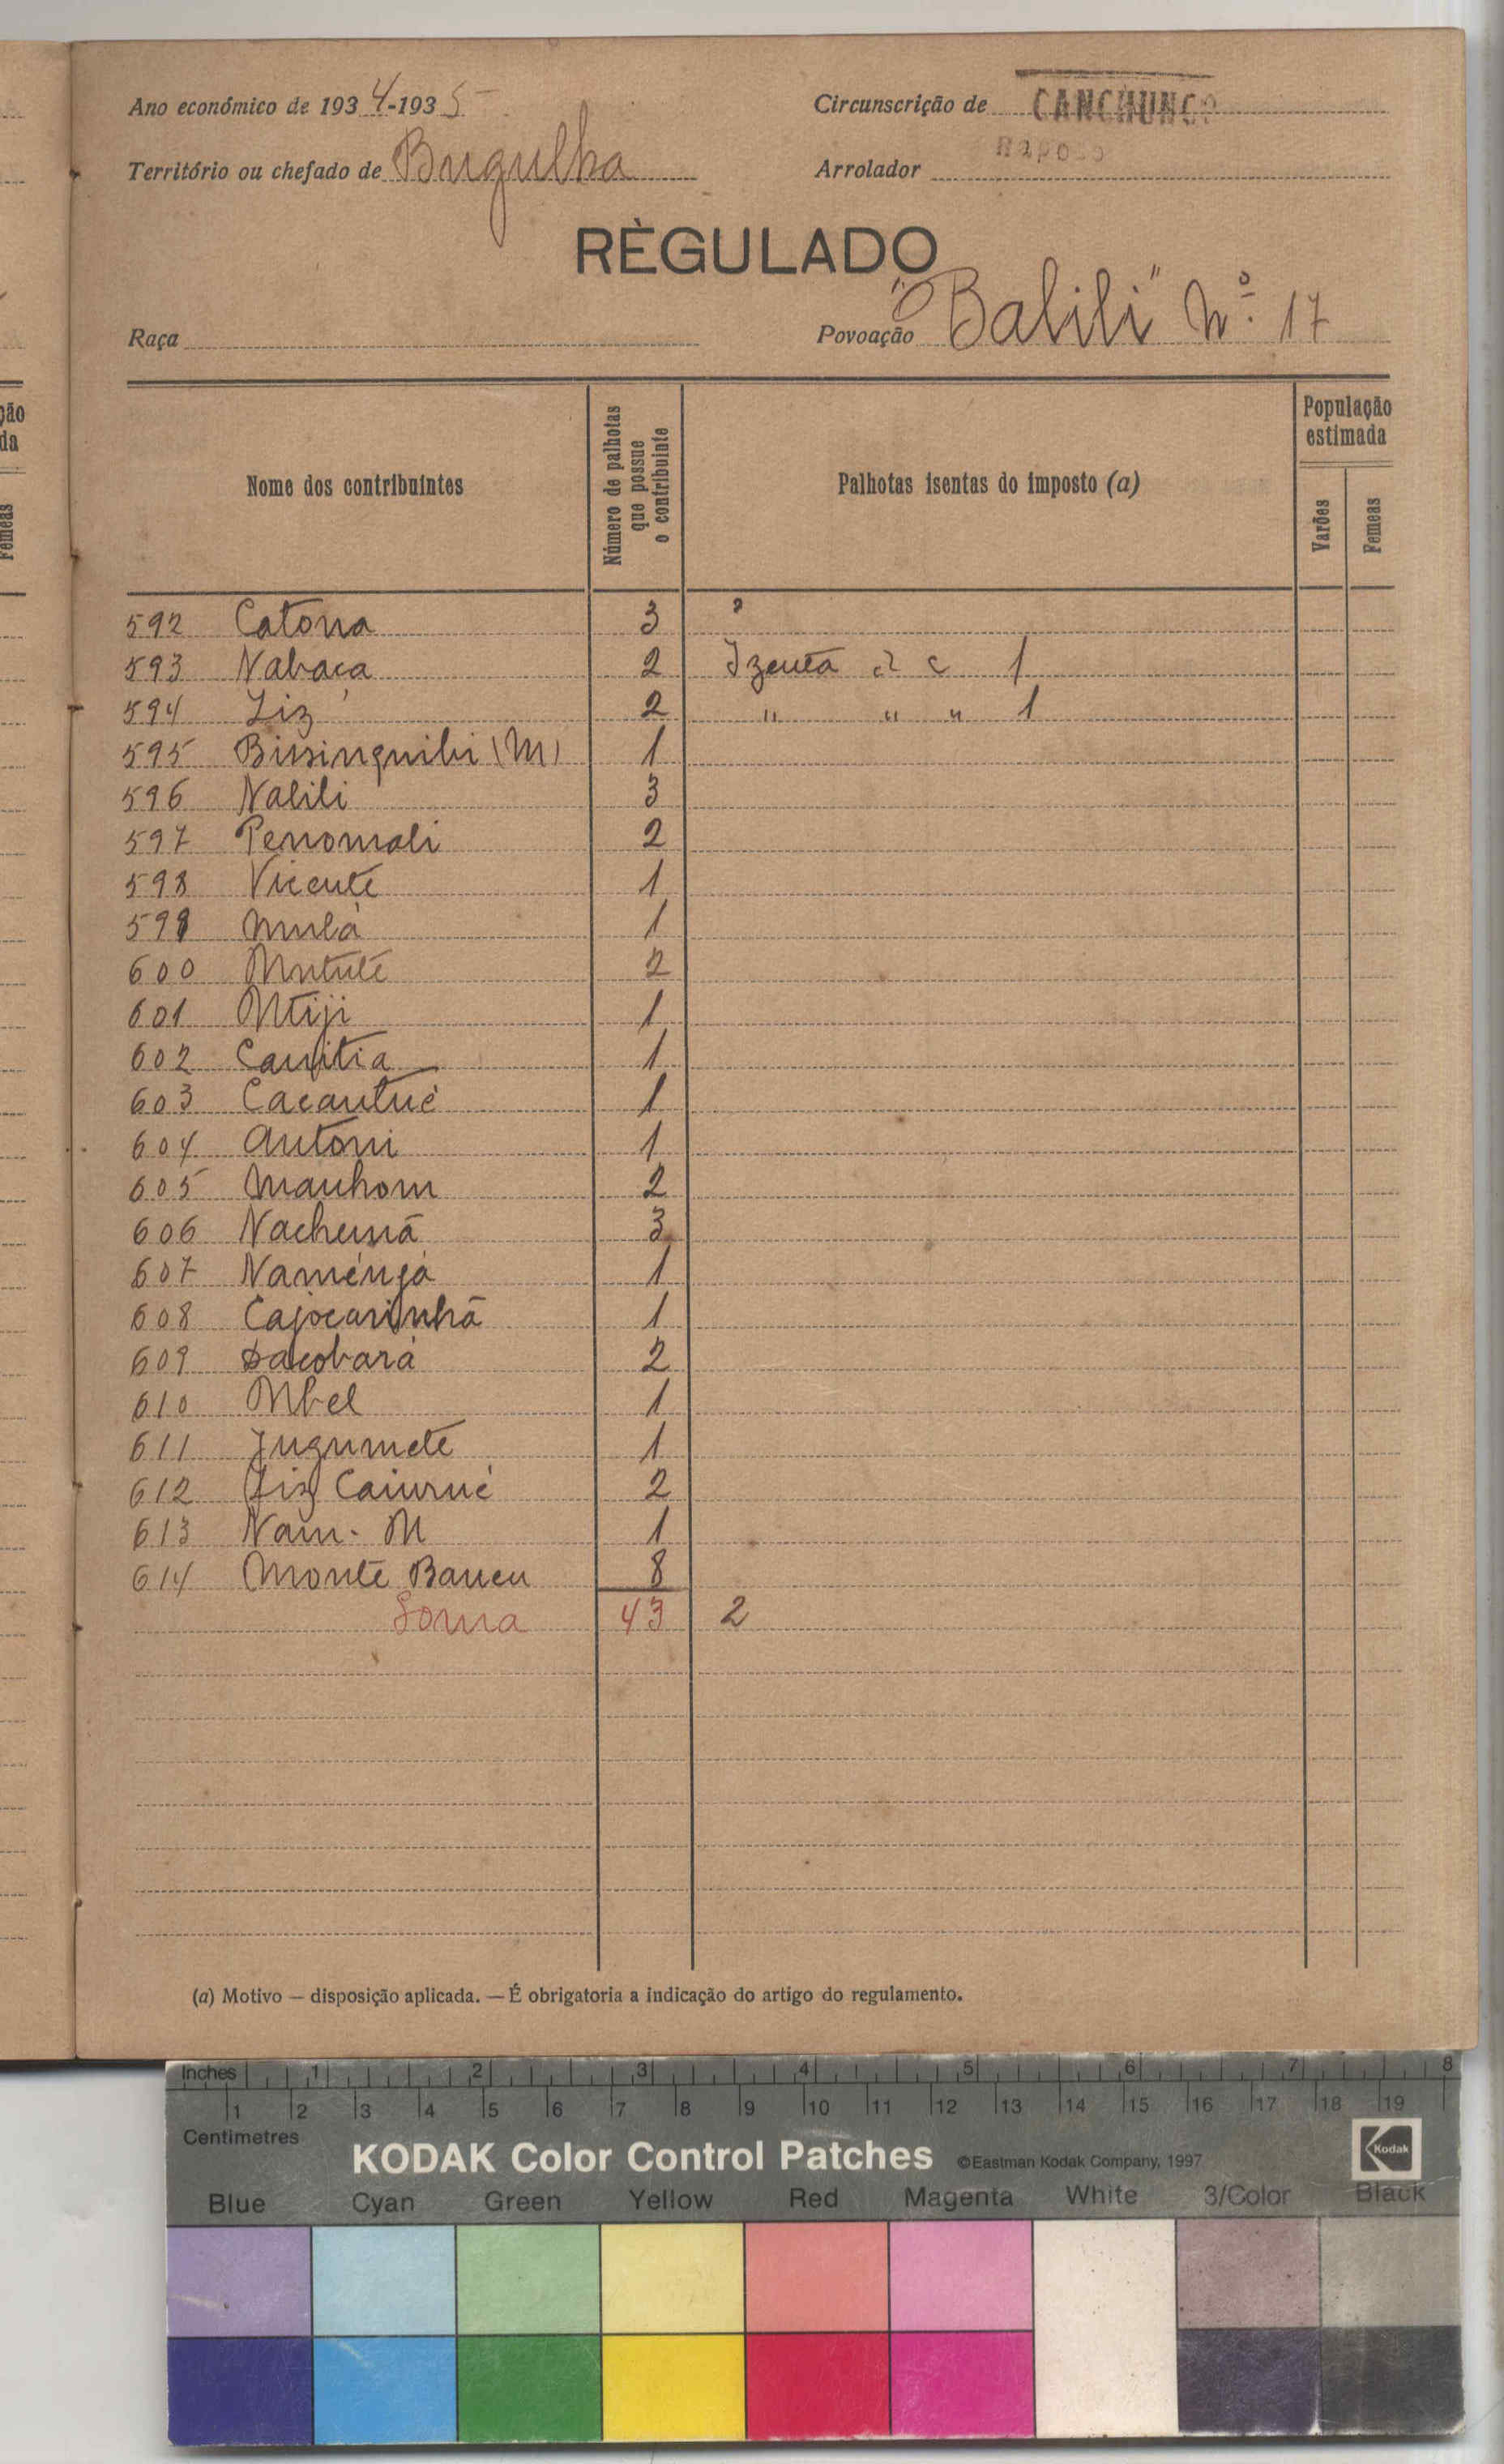 Ano económico de 1934-1935
Circunscrição de CANCHUNGO
Território ou chefado de Bugulha
Arrolador Raposo
RÈGULADO
Raça
Povoação "Balili" Nº 17
Nome dos contribuintes
Número de palhotas que possue o contribuinte
Palhotas isentas do imposto (a)
População estimada
Varões
Femeas
592 Catona 3
593 Nabaca 2 Izenta d c 1
594 Liz 2 " " " 1
595 Bissinquili (M) 1
596 Nalili 3
597 Penomali 2
598 Vicente 1
599 Mulá 1
600 Mutute 2
601 Mtiji 1
602 Canitia 1
603 Cacantué 1
604 Antoni 1
605 Manhom 2
606 Nachemã 3
607 Naménga 1
608 Cajocarinhã 1
609 Dacobará 2
610 Mbel 1
611 Jugumete 1
612 Liz Caiurué 2
613 Nam. M 1
614 Monte Baucu 8
Soma 43 2
(a) Motivo — disposição aplicada. — É obrigatoria a indicação do artigo do regulamento.
ção
da
Femeas
Inches 1 2 3 4 5 6 7 8
1 2 3 4 5 6 7 8 9 10 11 12 13 14 15 16 17 18 19
Centimetres
KODAK Color Control Patches ©Eastman Kodak Company, 1997 Kodak
Blue Cyan Green Yellow Red Magenta White 3/Color Black